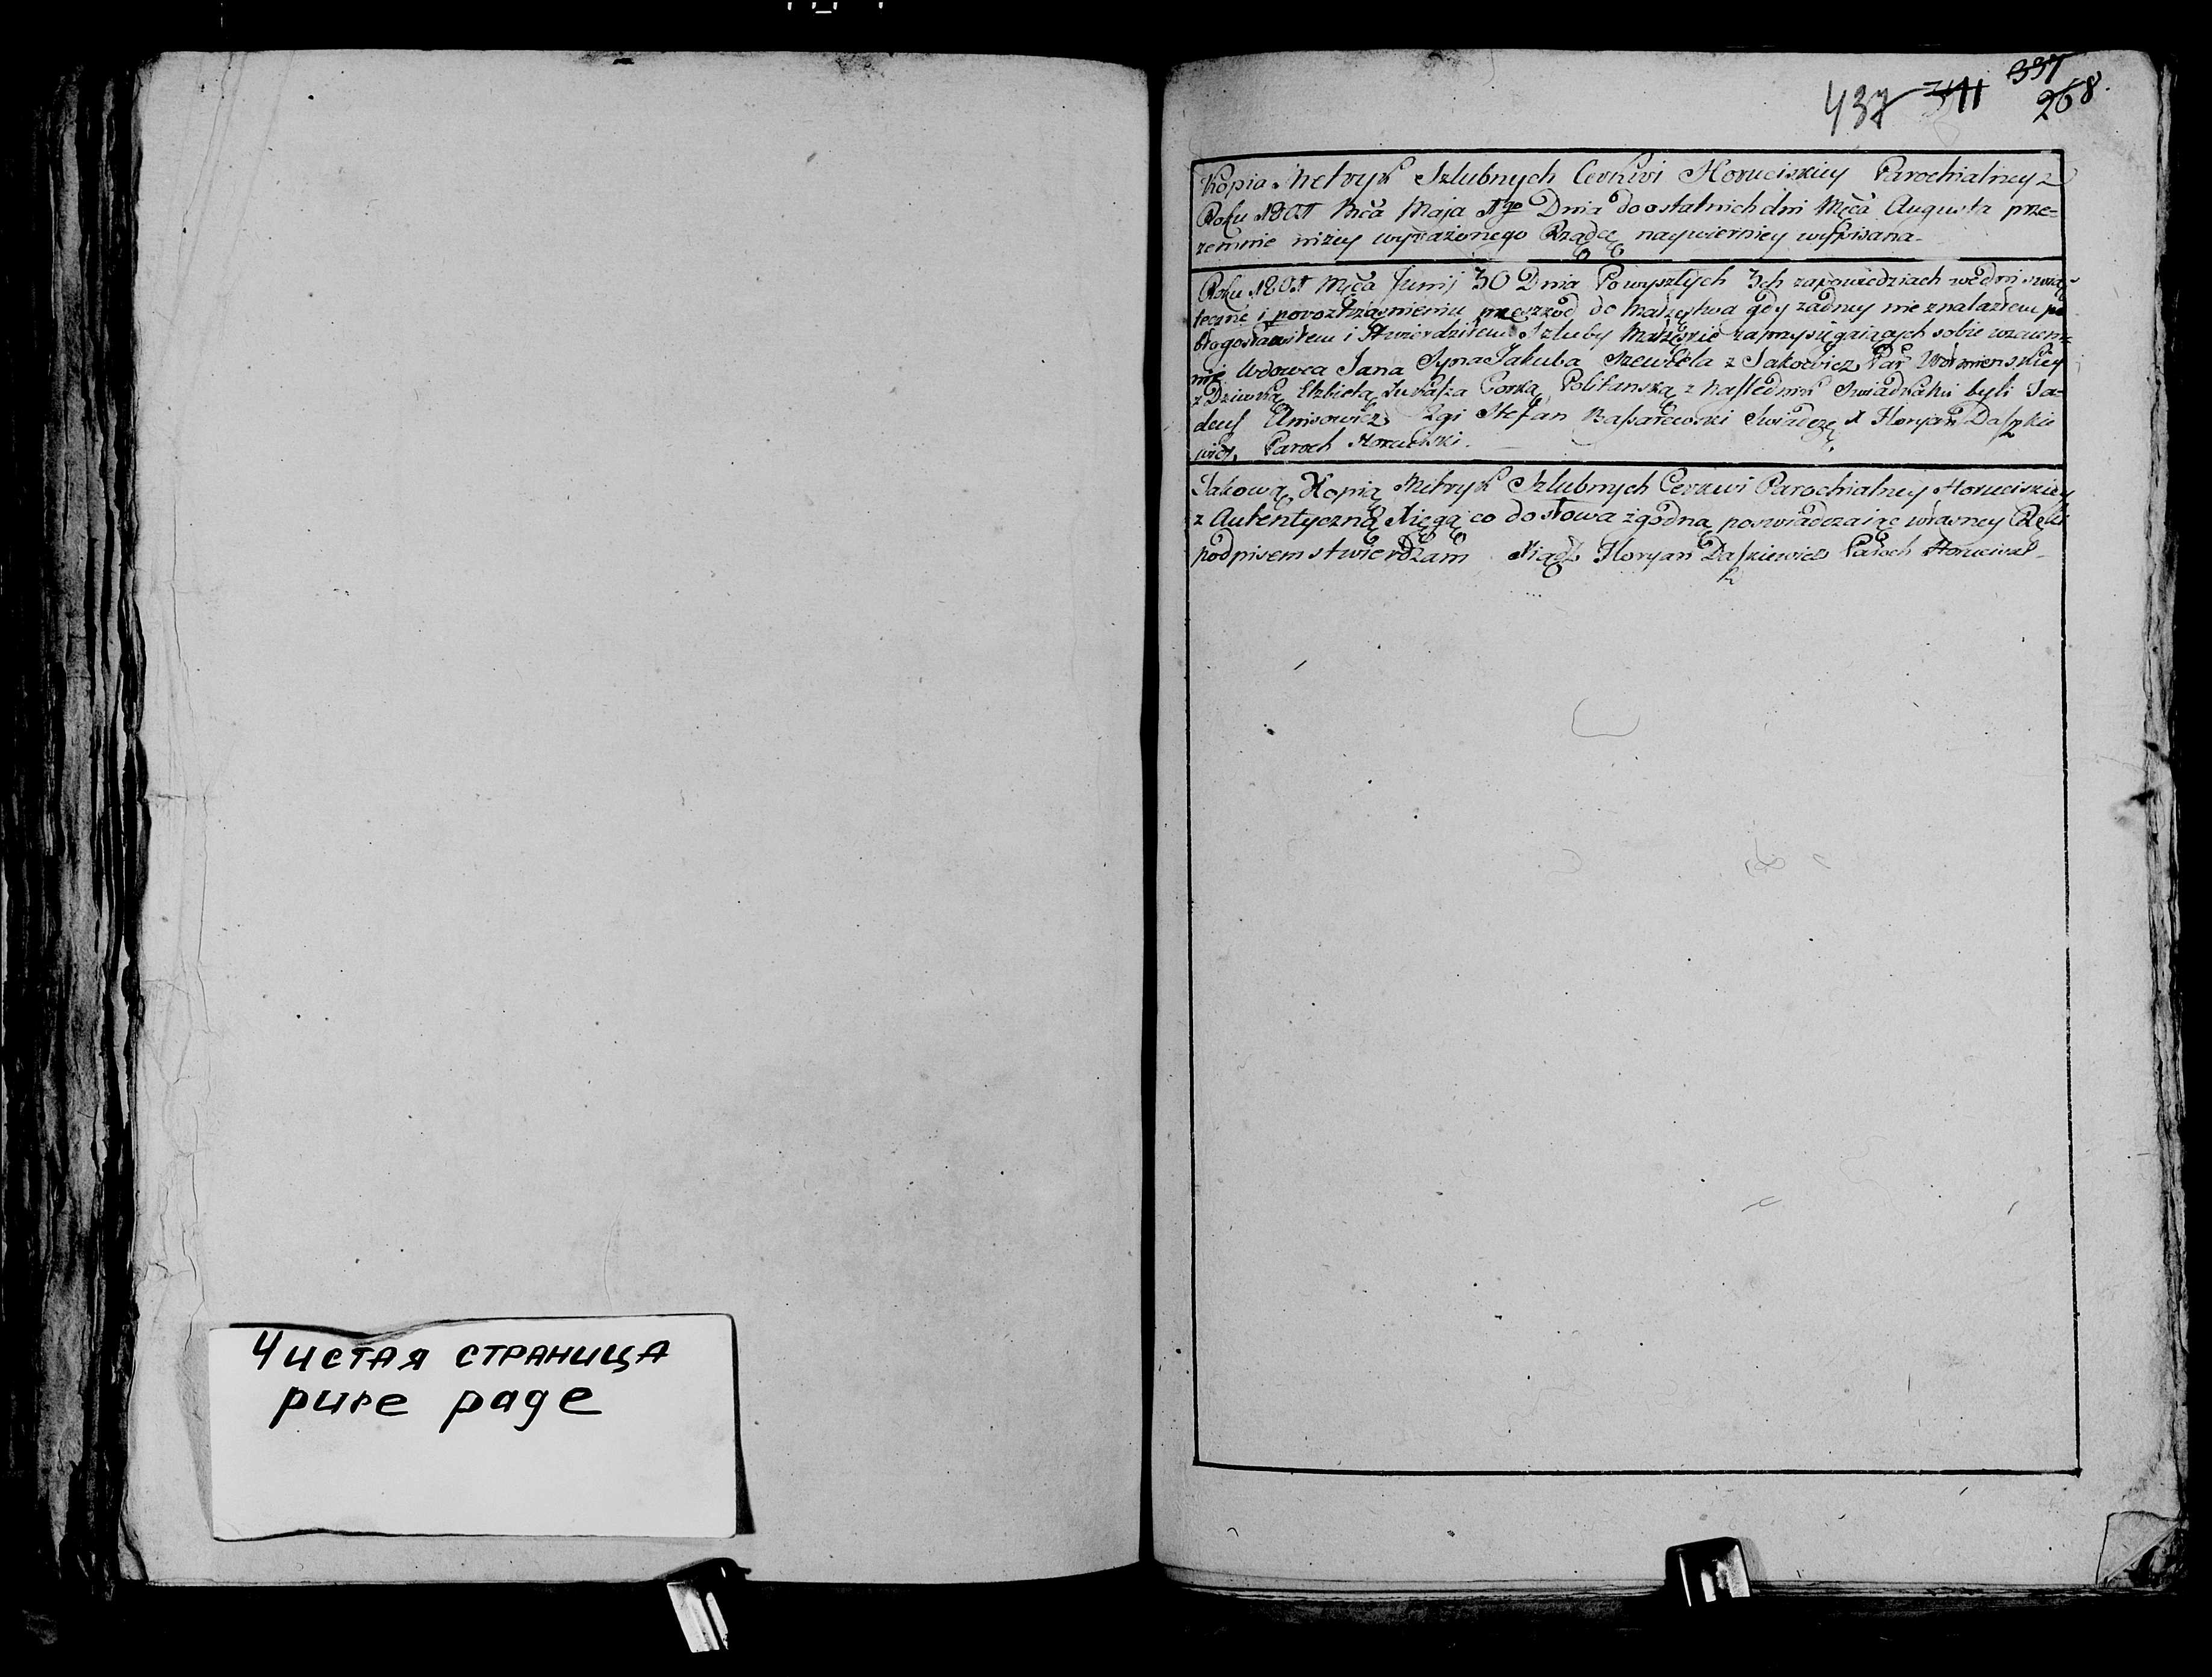 Чистая страница
pure page
437 341 337
268.
Kopia Metryk Szlubnych Cerkwi Horuciskiey Parochialney z
Roku 1801 Mca Maja 1go Dnia do ostatnich dni Męca Augusta prze-
zemnie niżey wyrażonego Rządcę naywierniey wypisana.
Roku 1801 Męca Junij 30 Dnia Po wyszłych 3ch zapowiedziach we dni świą-
teczne i po rozstrząśnieniu przeszkod do Małżeństwa gdy żadney nie znalazłem po
błogosławiłem i stwierdziłem Szluby Małżeskie zaprzysięgaiących sobie wzaiem-
nie Wdowca Jana Syna Jakuba z Jakowicz Par
z Dziewką Elżbietą Łukasza Corką Swiadkami byli Ta-
deusz 2gi Stefan Swiadczę X Floryan Daszkie
wicz Paroch Horuciski.
Takową Kopią Metryk Szlubnych Cerkwi Parochialney Horuciskiey
z Autentyczną Xięgą co do słowa zgodną poswiadczaiąc własney Ręki
podpisem stwierdzam Xiądz Floryan Daszkiewicz Paroch Horucisk